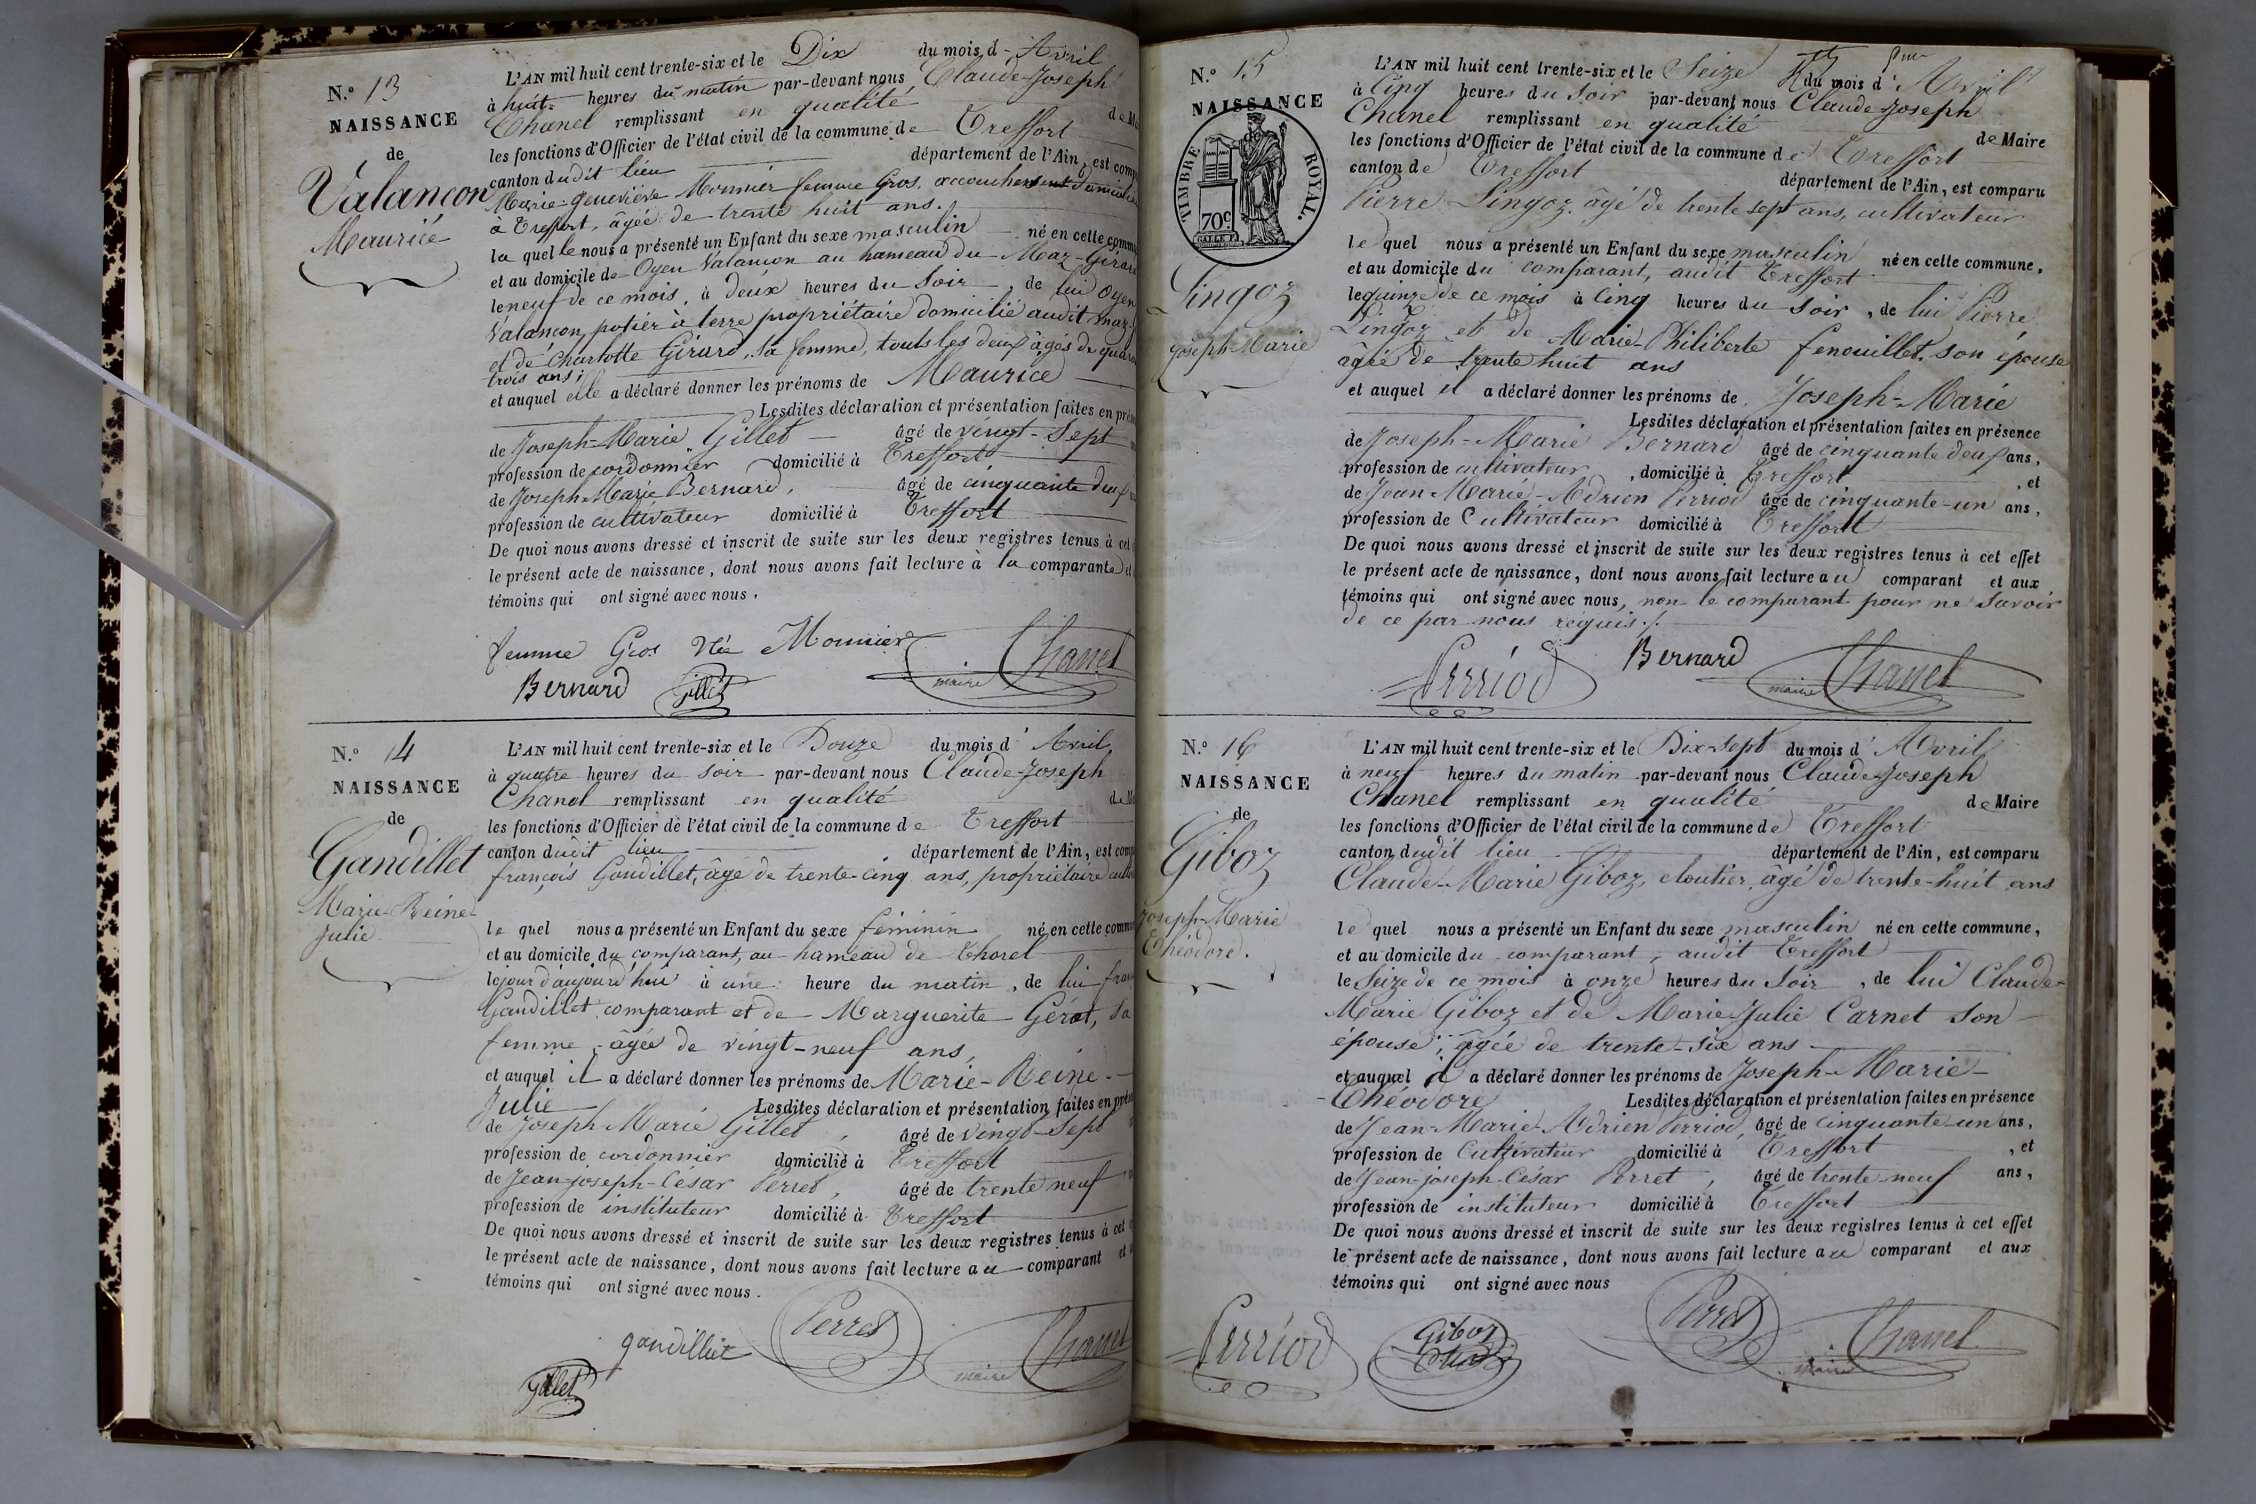 N.° 13
NAISSANCE
de
Valancon
Maurice
L'AN mil huit cent trente-six et le Dix du mois d'Avril
à huit heures du matin par-devant nous Claude-Joseph
Chanel remplissant en qualité de
les fonctions d'Officier de l'état civil de la commune de Treffort
canton dudit lieu département de l'Ain, est
Marie-Geneviève Monnier femme Gros,
à Treffort, âgée de trente huit ans.
la quelle nous a présenté un Enfant du sexe masculin né en cette
et au domicile de Oyen Valancon au hameau du Maz-Girard
le neuf de ce mois, à deux heures du Soir, de lui Oyen
Valancon, potier à terre propriétaire domicilié audit maz-
et de Charlotte Girard, sa femme, touts les deux âgés de
trois ans;
et auquel elle a déclaré donner les prénoms de Maurice
Lesdites déclaration et présentation faites en
de Joseph-Marie Gillet âgé de vingt-Sept
profession de cordonnier domicilié à Treffort
de Joseph Marie Bernard, âgé de cinquante deux
profession de cultivateur domicilié à Treffort
De quoi nous avons dressé et inscrit de suite sur les deux registres tenus à cet
le présent acte de naissance, dont nous avons fait lecture à la comparante et
témoins qui ont signé avec nous.
femme Gros Née Monnier
Chanel
maire
Bernard Gillet
N.° 14
NAISSANCE
de
Gandillet
Marie-Reine
Julie
L'AN mil huit cent trente-six et le Douze du mois d'Avril,
à quatre heures du soir par-devant nous Claude-Joseph
Chanel remplissant en qualité de
les fonctions d'Officier de l'état civil de la commune de Treffort
canton dudit lieu département de l'Ain, est
françois Gandillet, âgé de trente-cinq ans, propriétaire
le quel nous a présenté un Enfant du sexe féminin né en cette
et au domicile du comparant, au hameau de Thorel
le jour d'aujourd'hui à une heure du matin, de lui
Gandillet comparant et de Marguerite Gérat, sa
femme, âgée de vingt-neuf ans,
et auquel il a déclaré donner les prénoms de Marie-Reine-
Julie Lesdites déclaration et présentation faites en
de Joseph Marie Gillet, âgé de vingt-Sept
profession de cordonnier domicilié à Treffort
de Jean-joseph-César Perret, âgé de trente neuf
profession de instituteur domicilié à Treffort
De quoi nous avons dressé et inscrit de suite sur les deux registres tenus à cet
le présent acte de naissance, dont nous avons fait lecture au comparant et
témoins qui ont signé avec nous.
Perret
gandilliet
Chanel
maire
Gillet
N.° 15
NAISSANCE
de
TIMBRE ROYAL.
70c
Lingoz
Joseph Marie
L'AN mil huit cent trente-six et le Seize du mois d'Avril
à Cinq heures du Soir par-devant nous Claude-Joseph
Chanel remplissant en qualité de Maire
les fonctions d'Officier de l'état civil de la commune de Treffort
canton de Treffort département de l'Ain, est comparu
Pierre Lingoz, âgé de trente sept ans, cultivateur
le quel nous a présenté un Enfant du sexe masculin né en cette commune,
et au domicile du comparant, audit Treffort
le quinze de ce mois à Cinq heures du Soir, de lui Pierre
Lingoz et de Marie-Philiberte fenouillet, son épouse
âgée de trente huit ans
et auquel il a déclaré donner les prénoms de Joseph-Marie
Lesdites déclaration et présentation faites en présence
de Joseph-Marie Bernard âgé de cinquante deux ans,
profession de cultivateur, domicilié à Treffort, et
de Jean Marie-Adrien Perriod âgé de cinquante-un ans,
profession de Cultivateur domicilié à Treffort
De quoi nous avons dressé et inscrit de suite sur les deux registres tenus à cet effet
le présent acte de naissance, dont nous avons fait lecture au comparant et aux
témoins qui ont signé avec nous, non le comparant pour ne Savoir
de ce par nous requis./.
Perriod Bernard Chanel
maire
N.° 16
NAISSANCE
de
Giboz
Joseph-Marie
Théodore.
L'AN mil huit cent trente-six et le Dix-Sept du mois d'Avril
à neuf heures du matin par-devant nous Claude-Joseph
Chanel remplissant en qualité de Maire
les fonctions d'Officier de l'état civil de la commune de Treffort
canton dudit lieu département de l'Ain, est comparu
Claude-Marie Giboz, cloutier, âgé de trente-huit ans
le quel nous a présenté un Enfant du sexe masculin né en cette commune,
et au domicile du comparant, audit Treffort
le Seize de ce mois à onze heures du Soir, de lui Claude-
Marie Giboz et de Marie-Julie Carnet son
épouse, âgée de trente-six ans
et auquel il a déclaré donner les prénoms de Joseph-Marie-
Théodore Lesdites déclaration et présentation faites en présence
de Jean-Marie-Adrien Perriod, âgé de cinquante-un ans,
profession de Cultivateur domicilié à Treffort, et
de Jean-joseph-César Perret, âgé de trente-neuf ans,
profession de instituteur domicilié à Treffort
De quoi nous avons dressé et inscrit de suite sur les deux registres tenus à cet effet
le présent acte de naissance, dont nous avons fait lecture au comparant et aux
témoins qui ont signé avec nous
Perriod Giboz Perret Chanel
maire